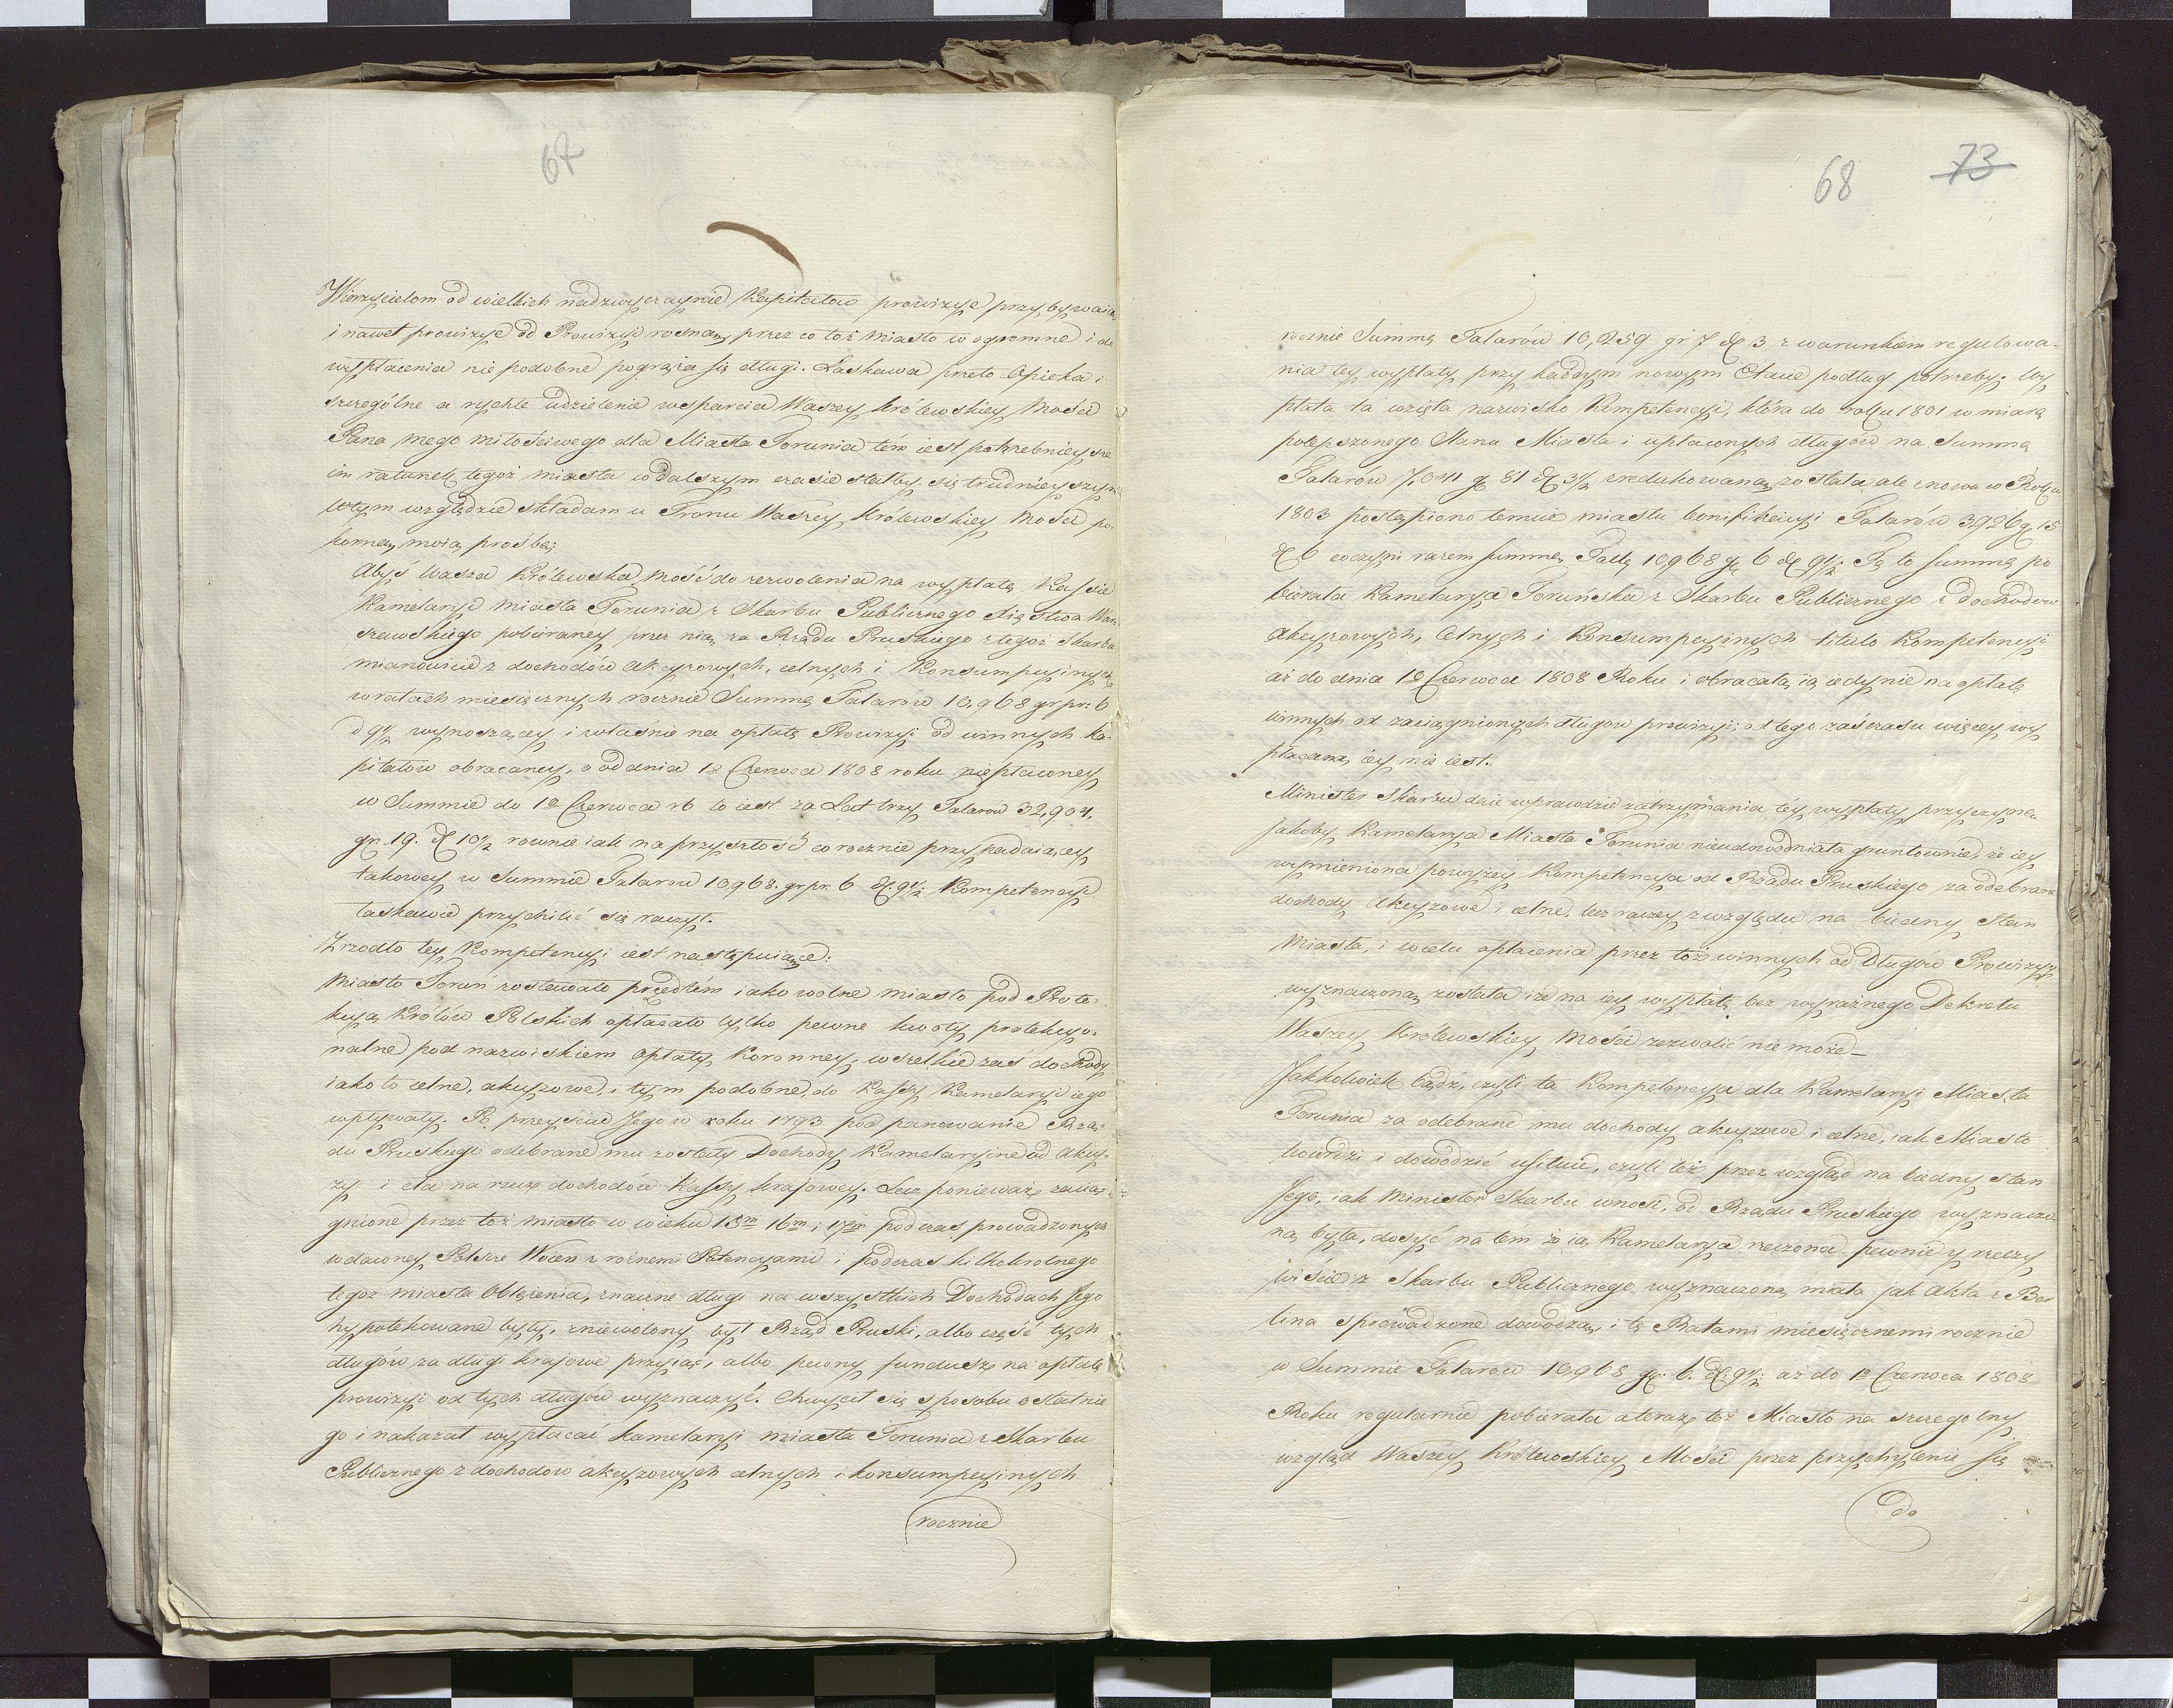 67
Wierzycielom od wielkich nadzwyczaynie Kapitałow prowizye przybywaią
i nawet prowizye od Prowizyi rosną, przez co toż miasto w ogromne i do
wypłacenia nie podobne pogrąża się długi. Łaskawa przeto Opieka i
szczególne a rychłe udzielenie wsparcia Waszey Królewskiey Mości
Pana mego miłościwego dla Miasta Torunia tém iest potrzebnieysze
im ratunek tegoż miasta w dalszym czasie stałby się trudnieyszym
w tym względzie składam u Tronu Waszey Królewskiey Mości po-
korną moią prośbę;
Abyś Wasza Królewska Mość do zezwolenia na wypłatę Kassie
Kamelaryi miasta Torunia z Skarbu Publicznego Xięstwa War-
szawskiego pobieraney przez nią za Rządu Pruskiego z tegoż Skarbu
mianowicie z dochodów akcyzowych, celnych i Konsumpcyinych
w ratach miesięcznych rocznie Summę Talarów 10,968 gr pr: 6
d 9½ wynoszącey i właśnie na opłatę Prowizyi od winnych ka-
pitałow obracaney, a od dnia 1º Czerwca 1808 roku niepłaconey
w Summie do 1º Czerwca rb to iest za Lat trzy Talarow 32,904.
gr. 19. d 10½ rownie iak na przyszłość co rocznie przypadaiącey
takowey w Summie Talarow 10,968. gr pr. 6 d. 9½ Kompetencyi
łaskawie przychilić się raczył.
Zrzodło tey Kompetencyi iest następuiące:
Miasto Toruń zostawało przedtém iako wolne miasto pod Prote-
kcyą Królów Polskich opłacało tylko pewne kwoty protekcyo-
nalne pod nazwiskiem opłaty Koronney, wszelkie zaś dochody
iako to celne, akcyzowe, i tym podobne, do Kassy Kamelaryi iego
wpływały. Po przeyściu Jego w roku 1793 pod panowanie Rzą-
du Pruskiego odebrane mu zostały Dochody Kamelaryine od akcy-
zy i cła na rzecz dochodów Kassy krajowey. Lecz ponieważ zacią-
gnione przez toż miasto w wieku 15m 16m i 17m podczas prowadzonych
w dawney Polsce Woien z roznemi Potencyami i podczas kilkokrotnego
tegoż miasta Oblężenia, znaczne długi na wszystkich Dochodach Jego
hypotekowane były, zniewolony był Rząd Pruski, albo część tych
długów za długi krajowe przyiąć, albo pewny fundusz na opłatę
prowizyi od tych długow wyznaczyć. Chwycił się sposobu ostatnie
go i nakazał wypłacać kamelaryi miasta Torunia z Skarbu
Publicznego z dochodow akcyzowych celnych i konsumpcyinych
rocznie
68 73
rocznie Summę Talarów 10,259 gr 7 d 3 z warunkiem regulowa-
nia tey wypłaty przy każdym nowym Etacie podług potrzeby. Wy
płata ta wzięła nazwisko Kompetencyi, która do roku 1801 w miarę
polepszonego Stanu Miasta i upłaconych długów na Summę
Talarów 7,041 g 81 d 3½ zredukowaną została, ale znowu w Roku
1803 postąpiono temuż miastu bonifikacyi Talarów 3926 g. 15
d 6 co czyni razem summę Tall: 10,968 g 6 d 9½ Tę to summę po
bierała Kamelarya Toruńska z Skarbu Publicznego z dochodow
akcyzowych, Celnych i Konsumpcyinych titulo Kompetencyi
aż do dnia 1º Czerwca 1808 Roku i obracała ią iedynie na opłatę
winnych od zaciągnionych długow prowizyi; od tego zaś czasu więcey wy
płacaną iey nie iest.
Minister Skarbu daie wprawdzie zatrzymania téy wypłaty przyczynę
jakoby Kamelarya Miasta Torunia nieudowodniała gruntownie, że iey
wymieniona powyżey Kompetencya od Rządu Pruskiego za odebrane
dochody Akcyzowe i celne, lecz raczey z względu na biedny stan
Miasta, i w celu opłacenia przez toż winnych od Długow Prowizyi
wyznaczoną została i że na iey wypłatę bez wyraźnego Dekretu
Waszey Królewskiey Mości zezwolić nie może_
Jakkolwiek bądź, czyli ta Kompetencya dla Kamelaryi Miasta
Torunia za odebrane mu dochody akcyzowe i celne, iak Miasto
twierdzi i dowodzić usiłuie, czyli też przez wzgląd na biedny stan
Jego, iak Minister Skarbu wnosi, od Rządu Pruskiego wyznaczo-
ną była, dosyć na tem że ią Kamelarya rzeczona pewnie y rzeczy
wiście z Skarbu Publicznego wyznaczoną miała jak akta z Ber
lina sprowadzone dowodzą, i tę Ratami miesięcznemi rocznie
w Summie Talarow 10,968 gr. 6. d 9½ aż do 1º Czerwca 1808
Roku regularnie pobierała a teraz toż Miasto na szczegolny
wzgląd Waszey Królewskiey Mości przez przychylenie się
do